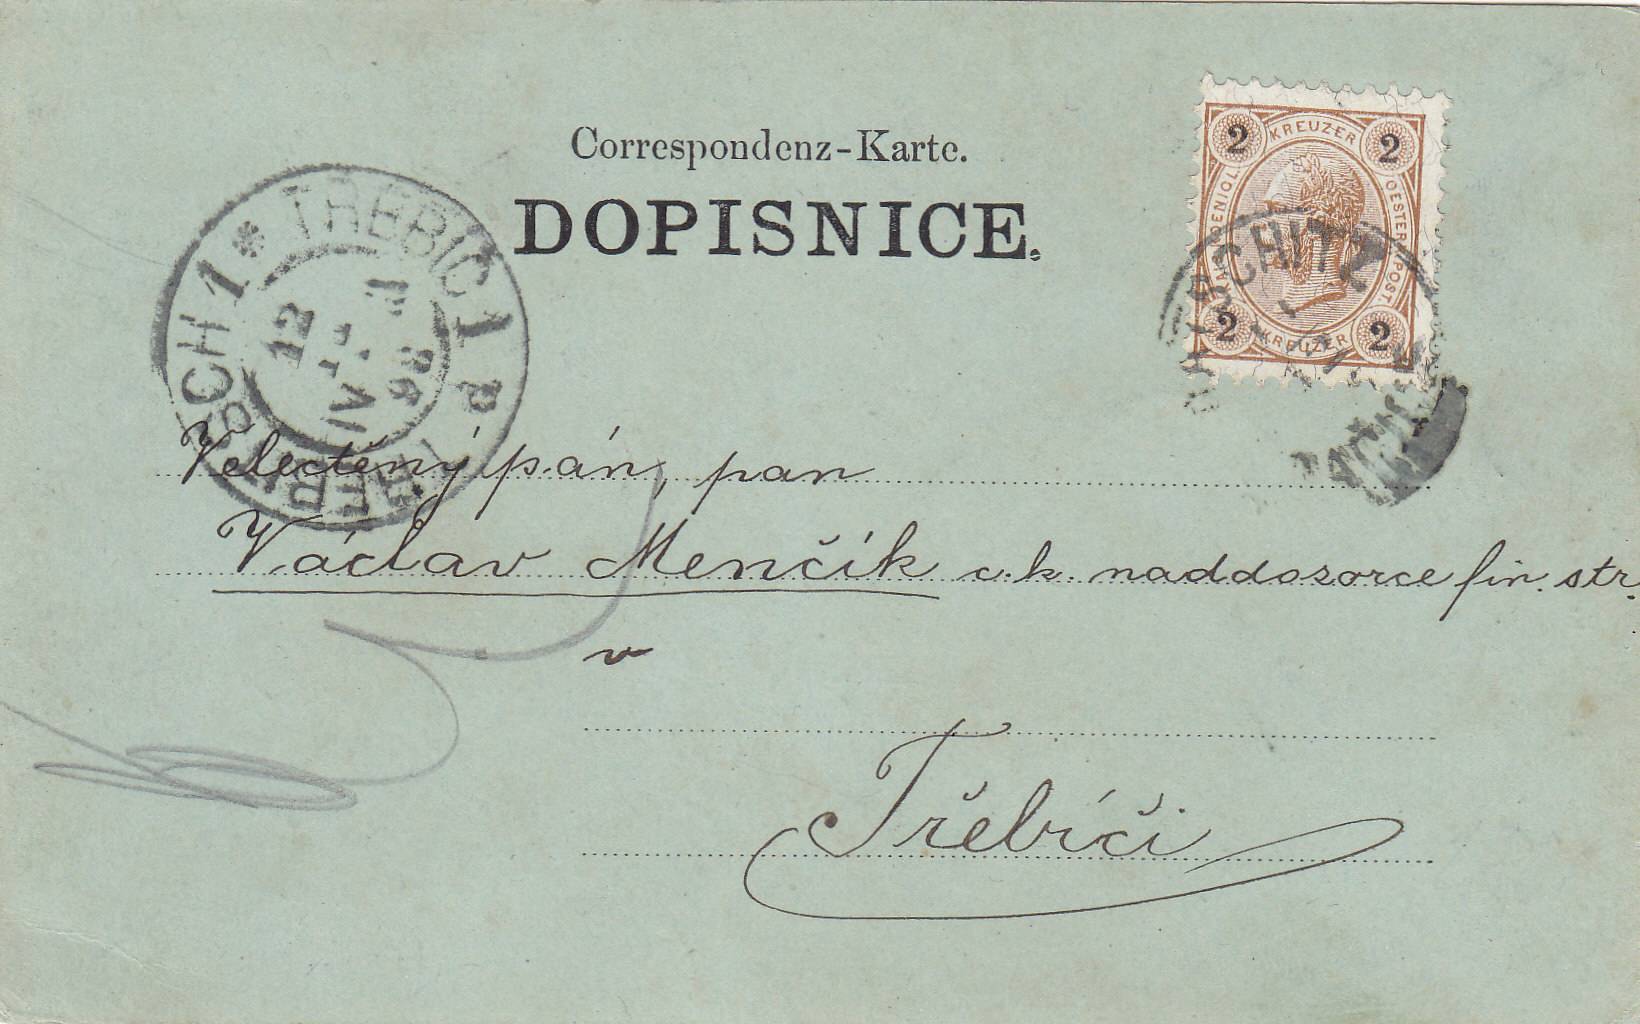 Correspondenz-Karte.
DOPISNICE.
2 KREUZER 2
KAIS. KOENIGL. OESTERR. POST.
2 KREUZER 2
TREBIC 1
TREBITSCH 1
12
IV
98
Velectěný pán, pan
Václav Menčík c. k. naddozorce fin. str.
v
Třebíči